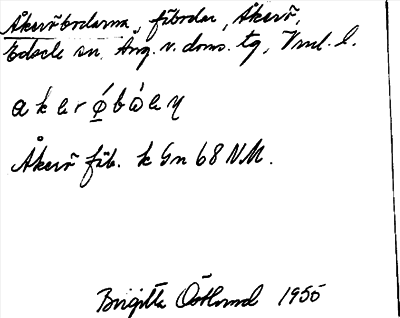 Åkeröbodarna, fäbodar, Åkerö,
Edsele sn, Ång. v. doms. tg, Vnl. l.
akerǿbẃaɳ
Åkerö fäb. k Gn 68 NM.
Birgitta Östlund 1955